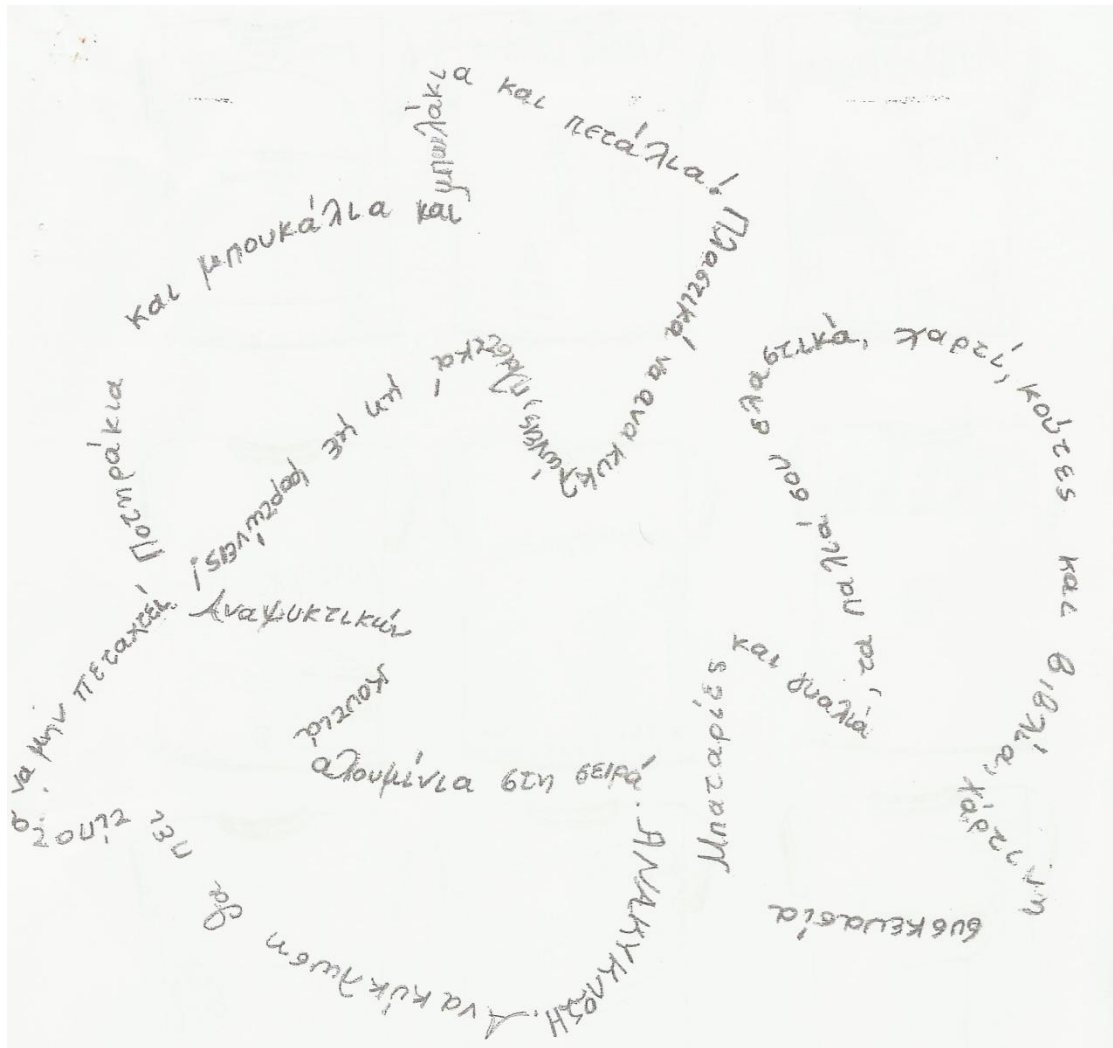 Ποτηράκια
και μπουκάλια και
μπωλάκια και πετάλια!
Πλαστικά να ανακυκλώνεις, πλαστικά,
μη με φορτώνεις!
Αναψυκτικών
κουτιά
αλουμίνια στη σειρά.
ΑΝΑΚΥΚΛΩΣΗ.
Ανακύκλωση θα πει, τίποτα
να μην πεταχτεί.
Μπαταρίες
και γυαλιά,
τα παλιά σου ελαστικά, χαρτί, κούτες και βιβλία, χάρτινη
συσκευασία